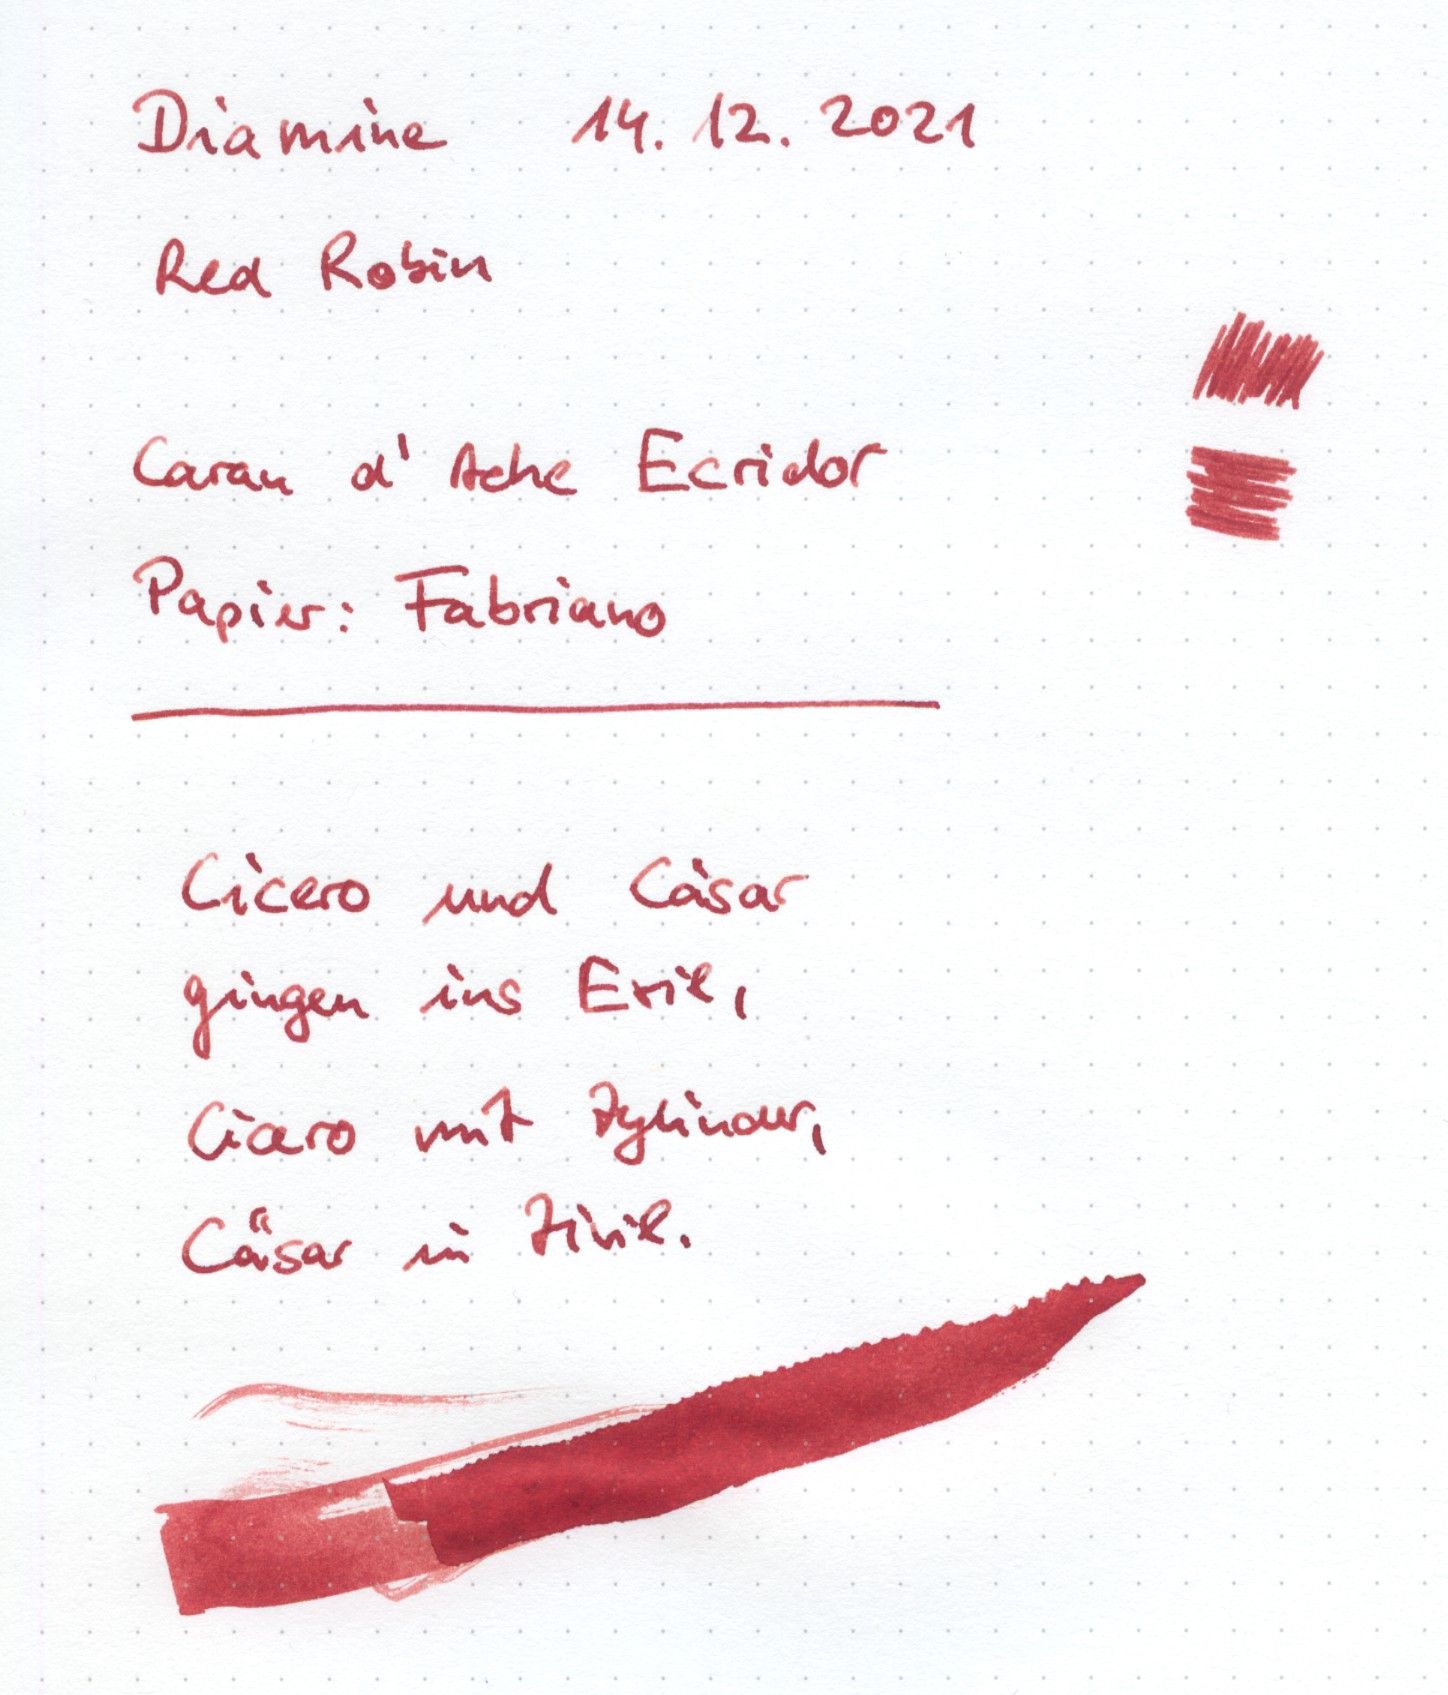 Diamine 14. 12. 2021
Red Robin
Caran d'Ache Ecridor
Papier: Fabriano
Cicero und Cäsar
gingen ins Exil,
Cicero mit Zylinder,
Cäsar in Zivil.